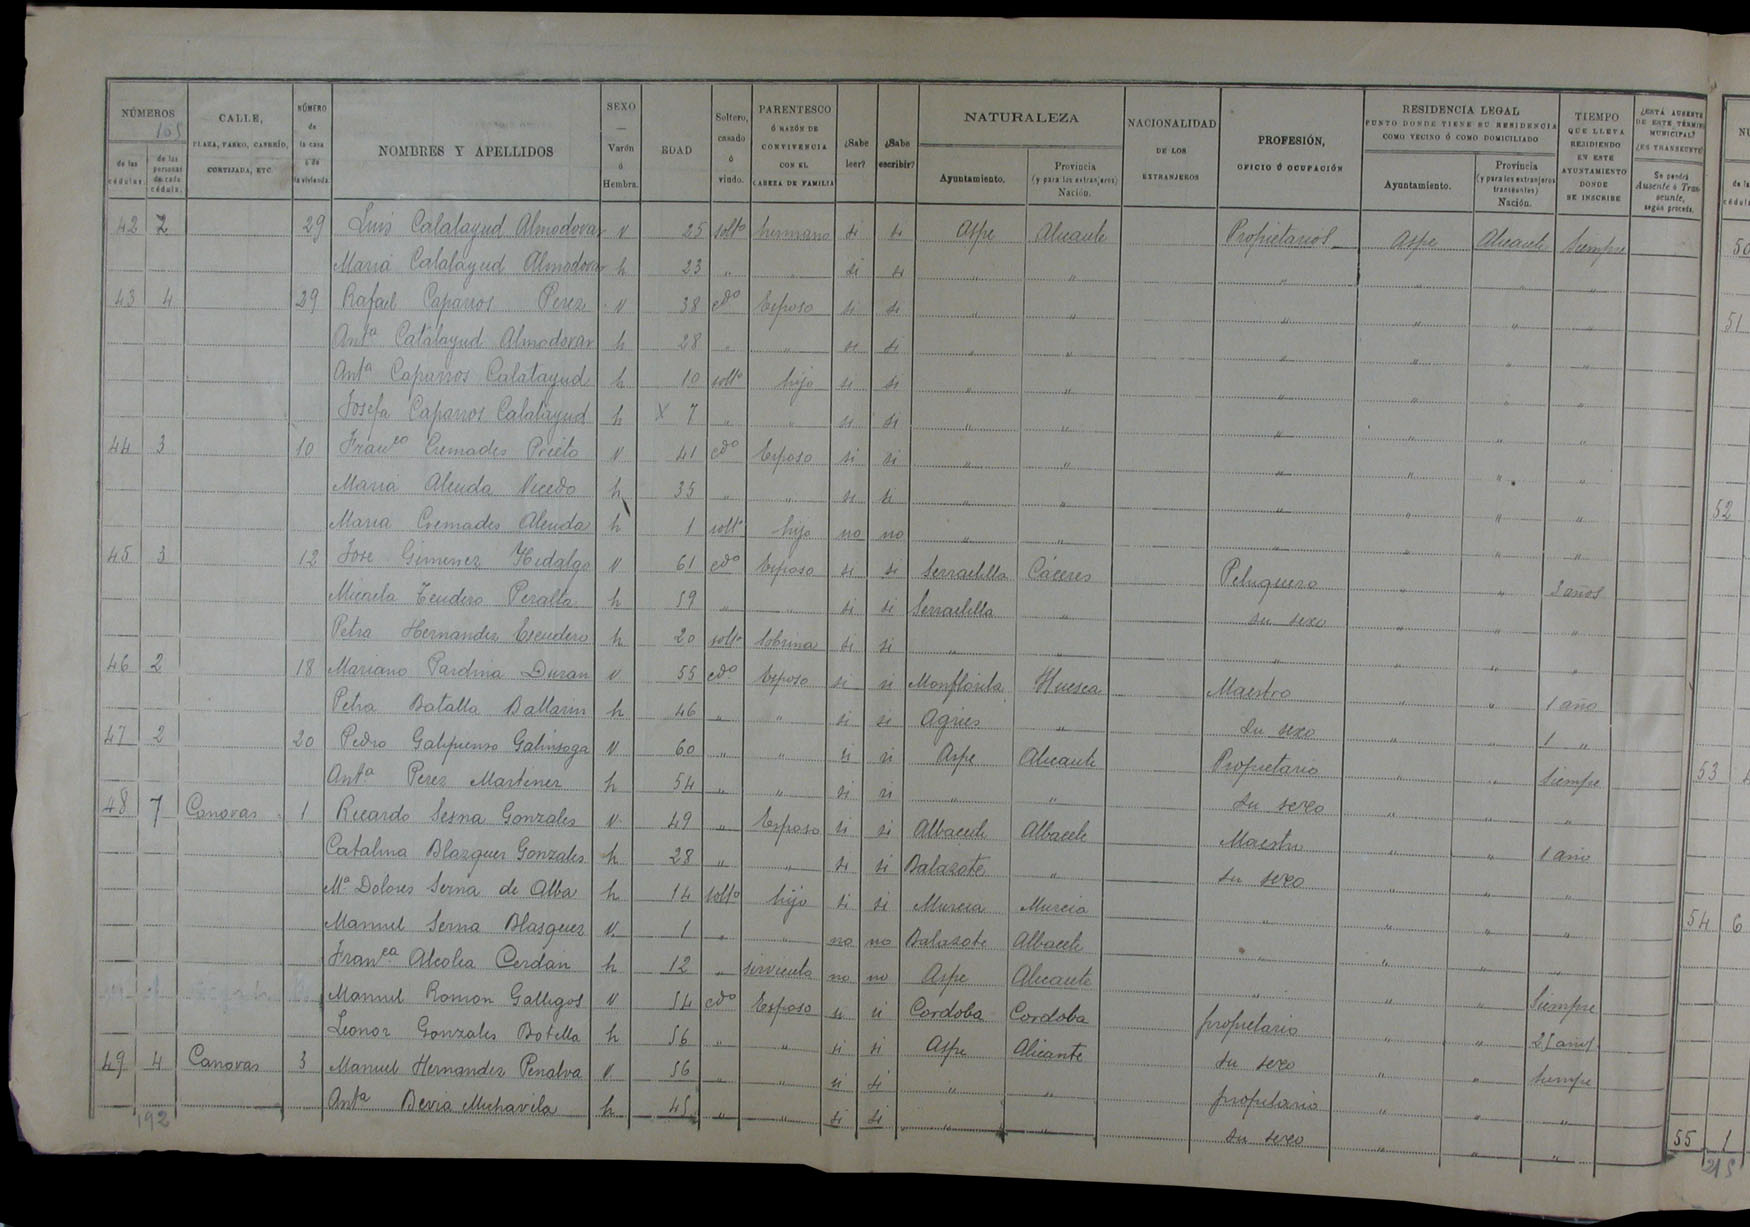 NÚMEROS
165
de las cédulas.
de las personas de cada cédula.
CALLE,
PLAZA, PASEO, CASERÍO,
CORTIJADA, ETC.
NÚMERO
de
la casa
ó de
la vivienda.
NOMBRES Y APELLIDOS
SEXO
—
Varón
ó
Hembra.
EDAD
Soltero,
casado
ó
viudo.
PARENTESCO
Ó RAZÓN DE
CONVIVENCIA
CON EL
CABEZA DE FAMILIA
¿Sabe
leer?
¿Sabe
escribir?
NATURALEZA
Ayuntamiento.
Provincia
(y para los extranjeros)
Nación.
NACIONALIDAD
DE LOS
EXTRANJEROS
PROFESIÓN,
OFICIO Ó OCUPACIÓN
RESIDENCIA LEGAL
PUNTO DONDE TIENE SU RESIDENCIA
COMO VECINO Ó COMO DOMICILIADO
Ayuntamiento.
Provincia
(y para los extranjeros
transeuntes)
Nación.
TIEMPO
QUE LLEVA
RESIDIENDO
EN ESTE
AYUNTAMIENTO
DONDE
SE INSCRIBE
¿ESTÁ AUSENTE
DE ESTE TÉRMINO
MUNICIPAL?
¿ES TRANSEUNTE?
Se pondrá
Ausente ó Tran-
seunte,
según proceda.
42 2 29 Luis Calatayud Almodovar v 25 solto hermano si si Aspe Alicante Propietarios Aspe Alicante Siempre
Maria Calatayud Almodovar h 23 " " si si " " " " " "
43 4 29 Rafael Caparros Perez v 38 cdo Esposo si si " " " " " "
Anta Calatayud Almodovar h 28 " " si si " " " " " "
Anta Caparros Calatayud h 10 solto hijo si si " " " " " "
Josefa Caparros Calatayud h X 7 " " si si " " " " " "
44 3 10 Franco Cremades Prieto v 41 cdo Esposo si si " " " " " "
Maria Alenda Vicedo h 35 " " si si " " " " " "
Maria Cremades Alenda h 1 solto hijo no no " " " " " "
45 3 12 Jose Gimenez Hidalgo v 61 cdo Esposo si si Serradilla Cáceres Peluquero " " 3 años
Micaela Escudero Peralta h 59 " " si si Serradilla " su sexo " " "
Petra Hernandez Escudero h 20 solto Sobrina si si " " " " " "
46 2 18 Mariano Pardina Duran v 55 cdo Esposo si si Monflorite Huesca Maestro " " 1 año
Petra Batalla Ballarin h 46 " " si si Agües " su sexo " " 1 "
47 2 20 Pedro Galipienso Galinsoga v 60 " " si si Aspe Alicante Propietario " " siempre
Anta Perez Martinez h 54 " " si si " " su sexo " " "
48 7 Canovas 1 Ricardo Serna Gonzales v 49 " Esposo si si Albacete Albacete Maestro " " 1 año
Catalina Blazquez Gonzales h 28 " " si si Balazote " su sexo " " "
Ma Dolores Serna de Alba h 14 solto hijo si si Murcia Murcia " " " "
Manuel Serna Blasquez v 1 " " no no Balazote Albacete " " " "
Franca Alcolea Cerdán h 12 " sirvienta no no Aspe Alicante " " " Siempre
Manuel Roman Gallegos v 54 cdo Esposo si si Cordoba Cordoba propietario " " 25 años
Leonor Gonzales Botella h 56 " " si si Aspe Alicante su sexo " " siempre
49 4 Canovas 3 Manuel Hernandez Penalva v 56 " " si si " " propietario " " "
Anta Devia Michavila h 45 " " si si " " su sexo " " "
192
50
51
52
53
54 6
55 1
215